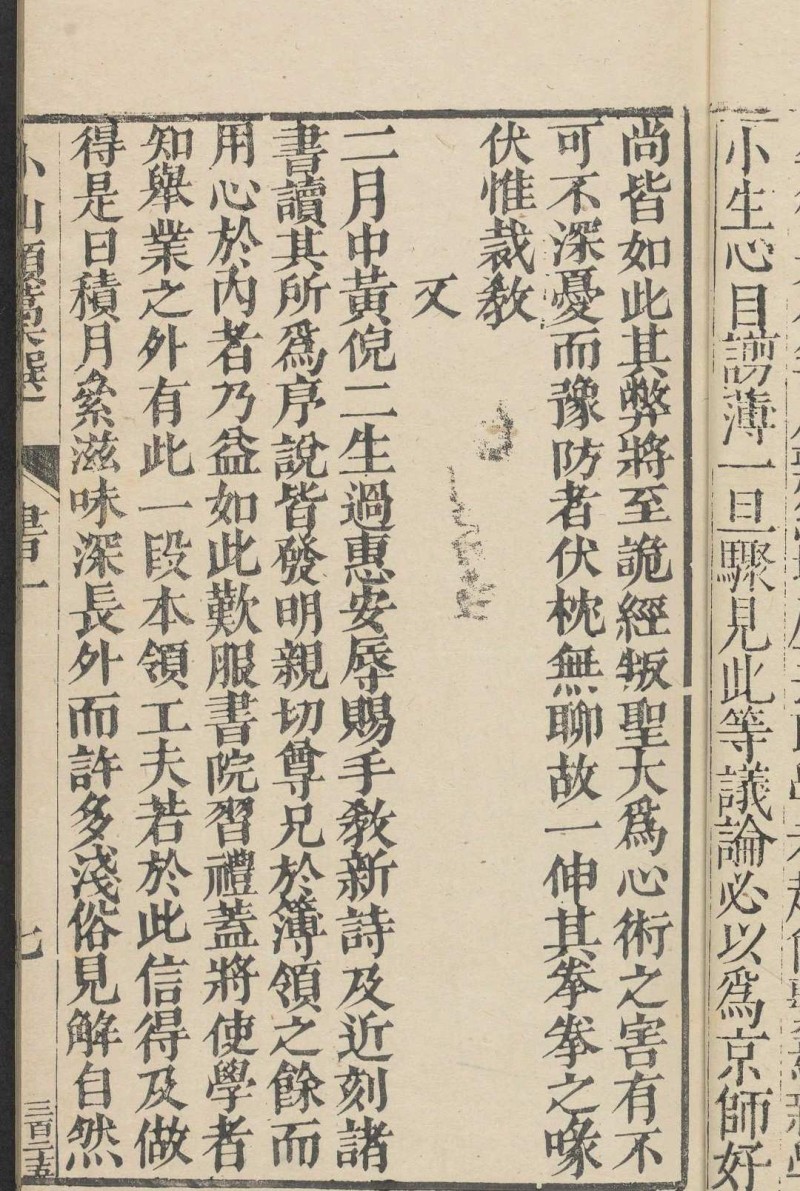 小生心目謭薄一旦驟見此等議論必以爲京師好
尚皆如此其弊將至詭經叛聖大爲心術之害有不
可不深憂而豫防者伏枕無聊故一伸其拳拳之喙
伏惟裁教
又
二月中黃倪二生過惠安辱賜手教新詩及近刻諸
書讀其所爲序說皆發明親切尊兄於簿領之餘而
用心於內者乃益如此歎服書院習禮蓋將使學者
知舉業之外有此一段本領工夫若於此信得及做
得是日積月絫滋味深長外而許多淺俗見解自然
小山類藁選
書一
七
三百二十五